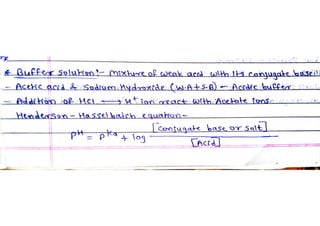 * Buffer solution:- mixture of weak acid with its conjugate base
- Acetic acid & Sodium Hydroxide (W.A+S.B) - Acidic buffer
- Addition of HCl ⟶ H⁺ ion react with Acetate ions
Henderson - Hasselbalch equation-
pH = pKa + log [conjugate base or salt] / [Acid]